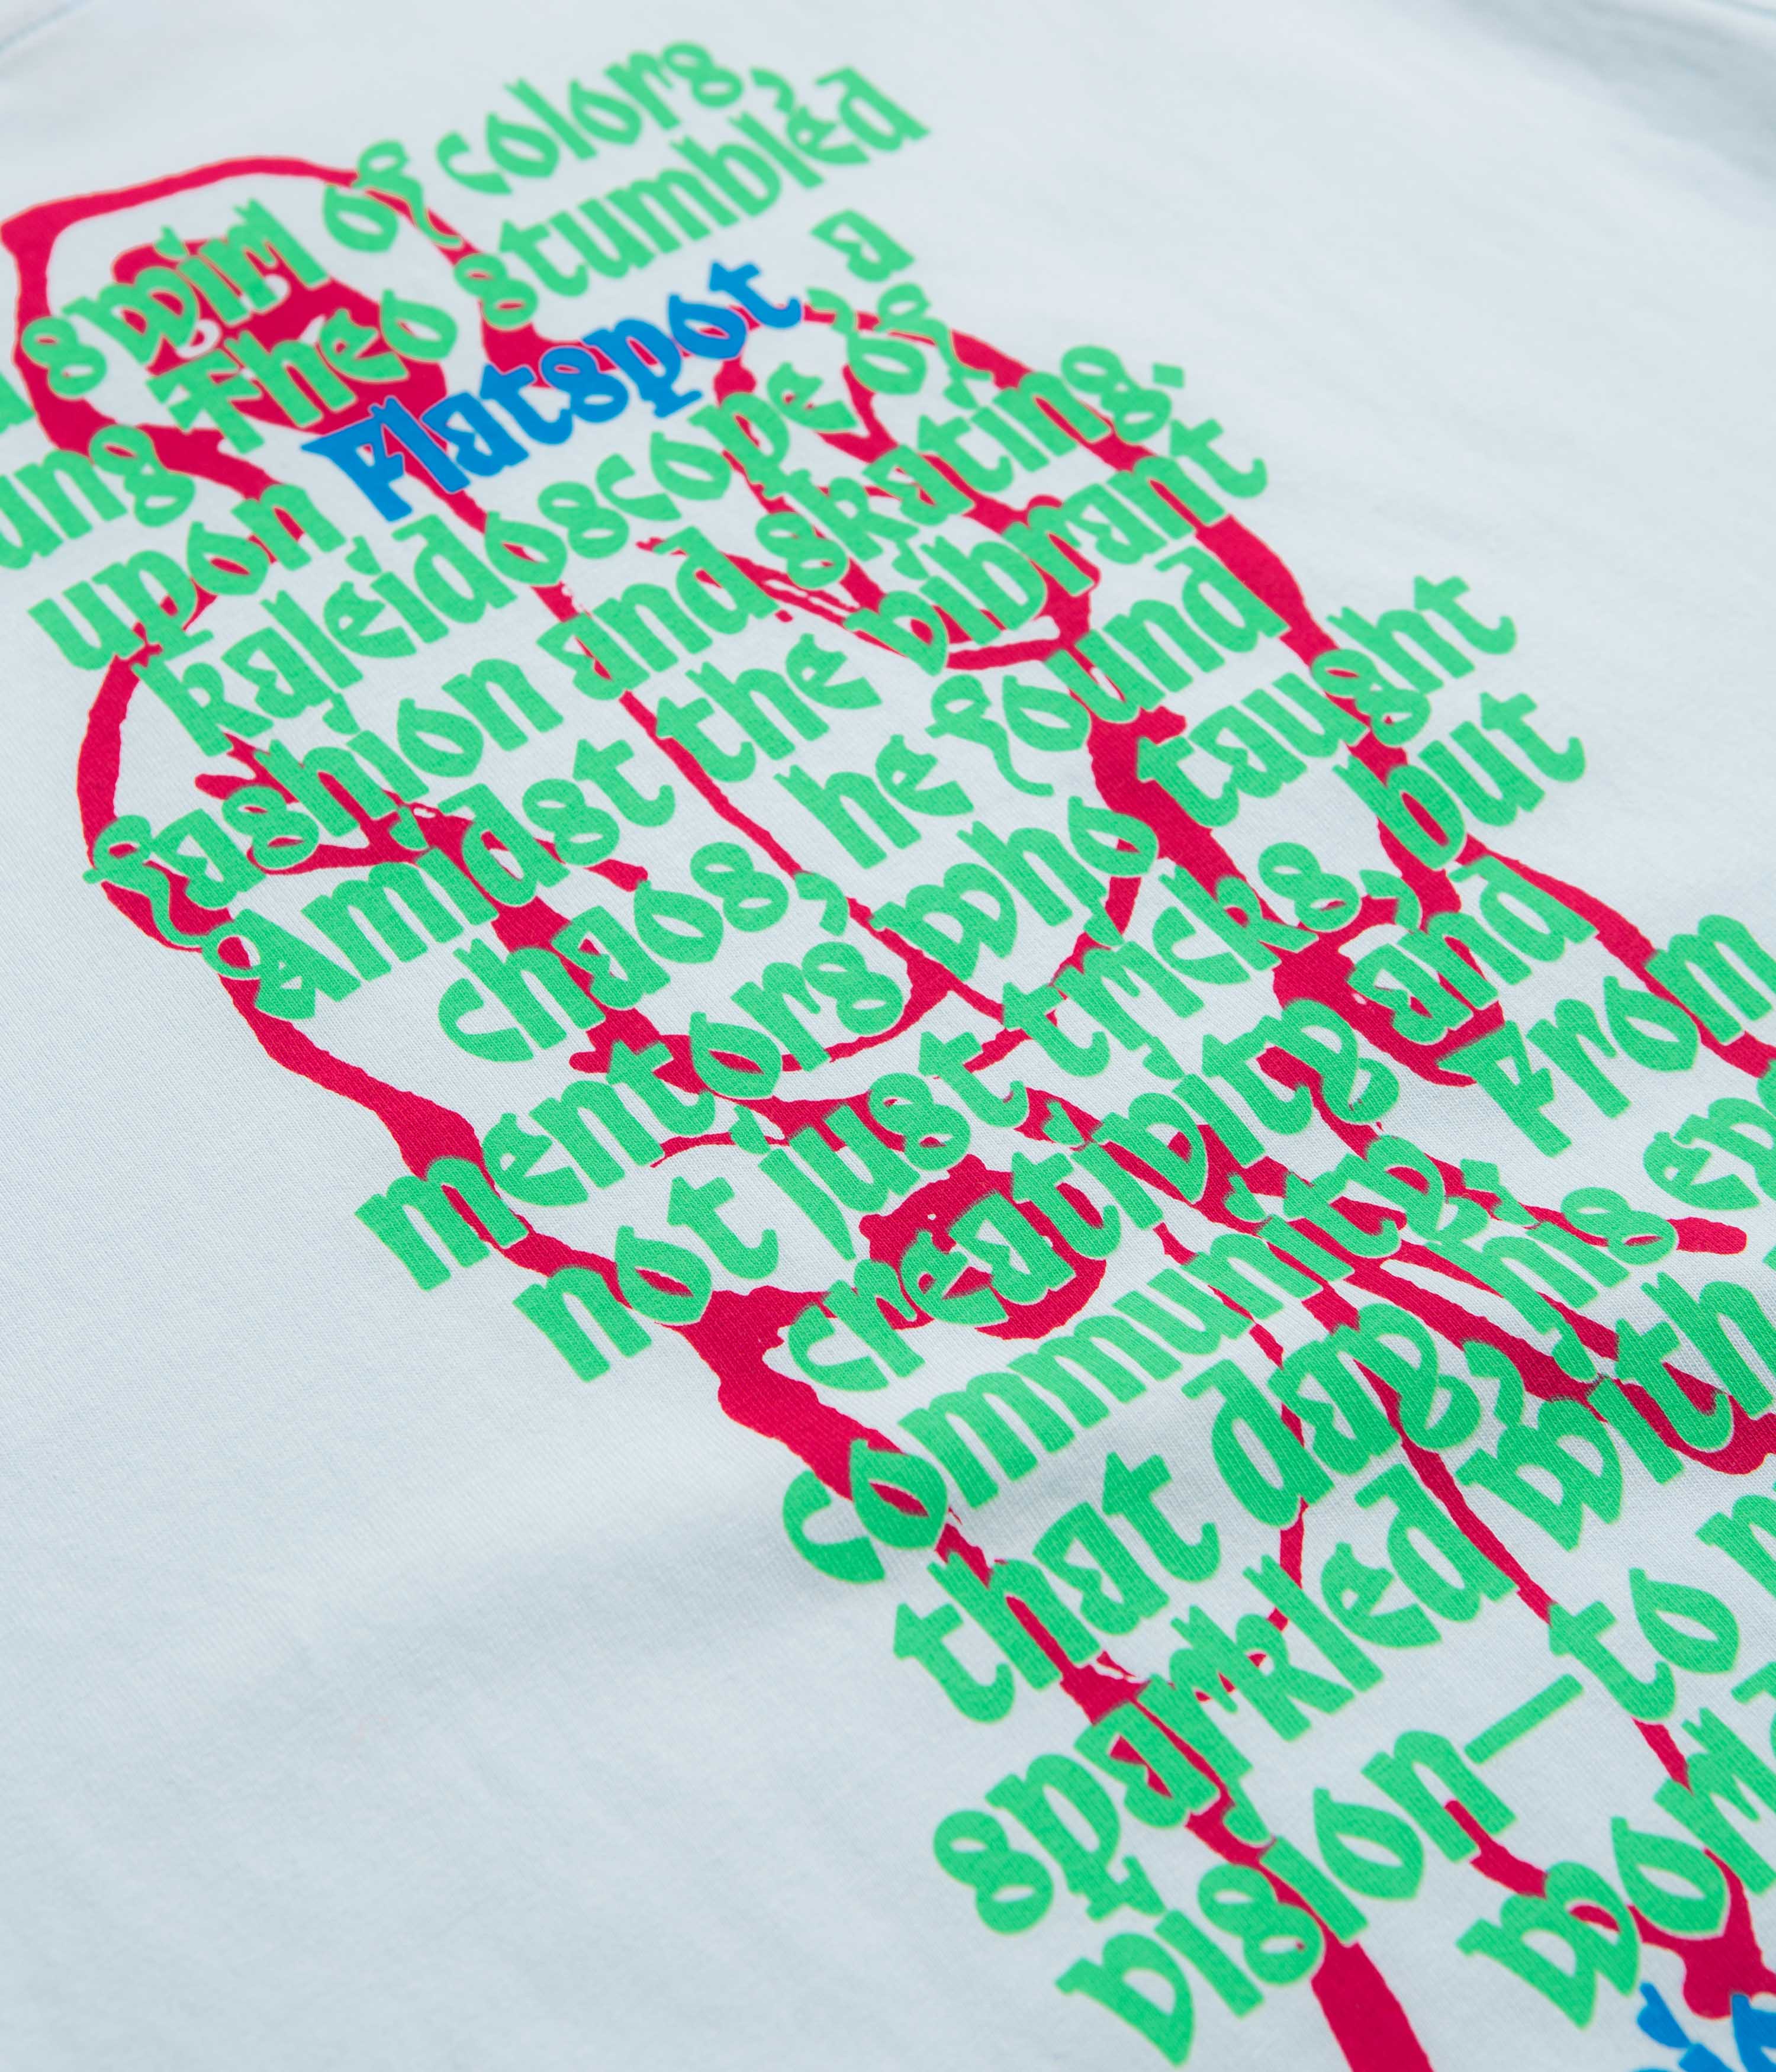 swirl of colors,
ung Theo stumbled
upon Flatspot, a
kaleidoscope of
fashion and skating.
Amidst the vibrant
chaos, he found
mentors who taught
not just tricks, but
creativity and
community. From
that day, his
sparkled with
vision—to